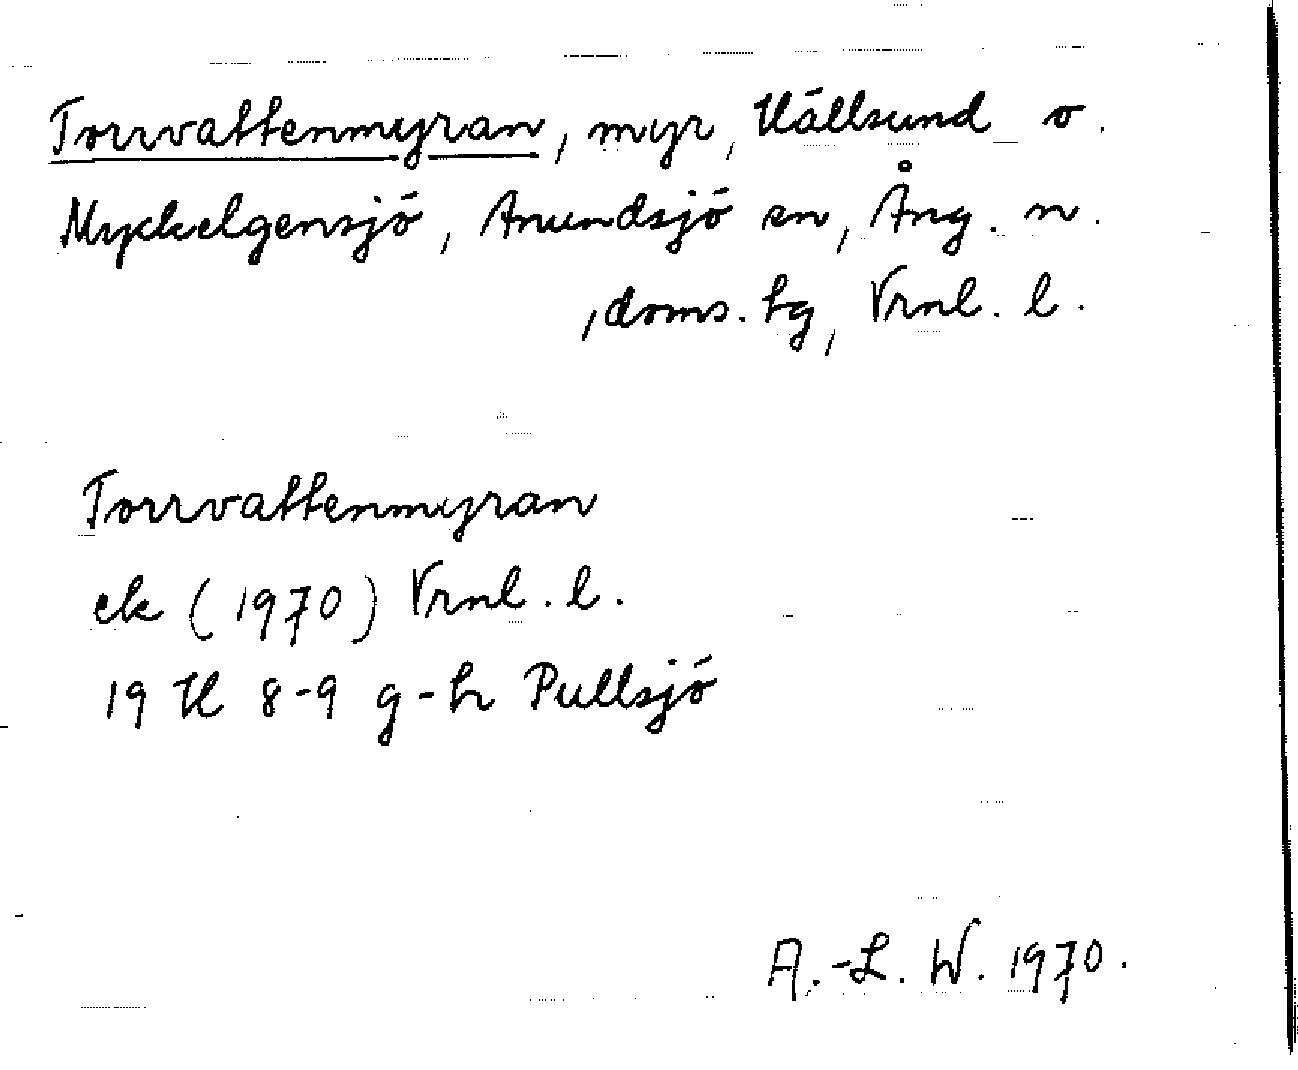 Torrvattenmyran, myr, Hällsund o.
Myckelgensjö, Anundsjö sn, Ång. n.
, doms. hg, Vrnl. l.
Torrvattenmyran
ek (1970) Vrnl. l.
19 H 8-9 g-h Pullsjö
A.-L. W. 1970.